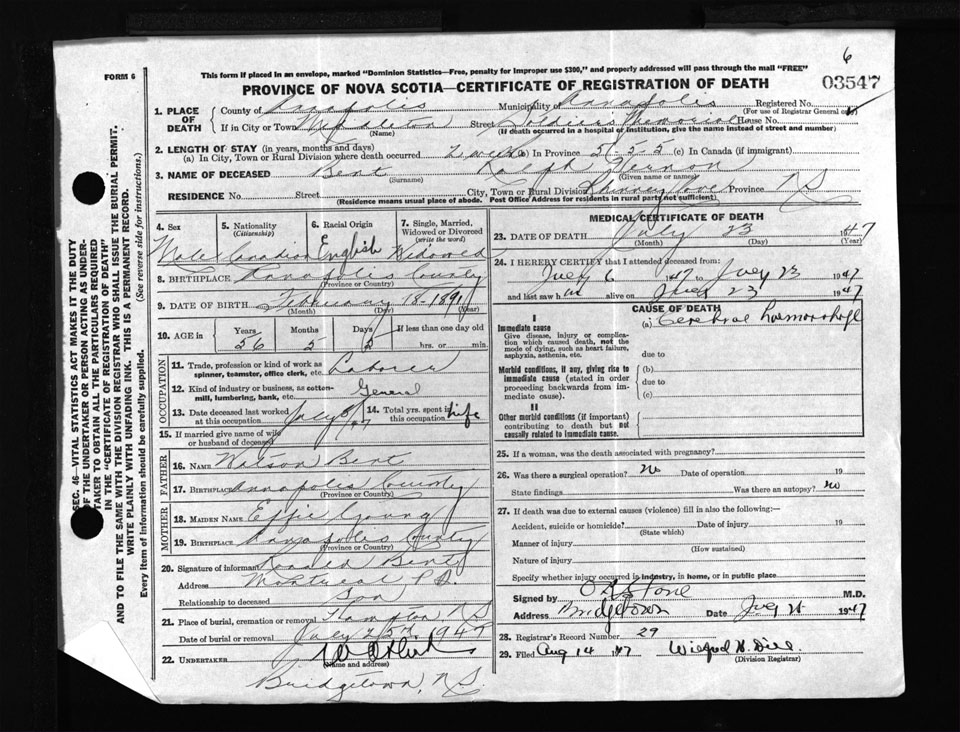 6
FORM 6
This form if placed in an envelope, marked "Dominion Statistics—Free, penalty for improper use $300," and properly addressed will pass through the mail "FREE"
PROVINCE OF NOVA SCOTIA—CERTIFICATE OF REGISTRATION OF DEATH 03547
1. PLACE OF DEATH
County of Annapolis Municipality of Annapolis Registered No.
(For use of Registrar General only)
If in City or Town Middleton Street Soldiers Memorial House No.
(Name) (If death occurred in a hospital or institution, give the name instead of street and number)
2. LENGTH OF STAY (in years, months and days)
(a) In City, Town or Rural Division where death occurred 2 weeks (b) In Province 56-5-5 (c) In Canada (if immigrant)
3. NAME OF DECEASED Bent Ralph
(Surname) (Given name or names)
RESIDENCE No. Street City, Town or Rural Division Province N S
(Residence means usual place of abode. Post Office Address for residents in rural parts not sufficient)
4. Sex
Male
5. Nationality
(Citizenship)
Canadian
6. Racial Origin
English
7. Single, Married, Widowed or Divorced
(write the word)
Widowed
8. BIRTHPLACE Annapolis County
(Province or Country)
9. DATE OF BIRTH February 18-1891
(Month) (Day) (Year)
10. AGE in Years Months Days If less than one day old
56 5 5 hrs. or min.
OCCUPATION
11. Trade, profession or kind of work as spinner, teamster, office clerk, etc. Laborer
12. Kind of industry or business, as cotton-mill, lumbering, bank, etc. General
13. Date deceased last worked at this occupation July /47
14. Total yrs. spent in this occupation Life
15. If married give name of wife or husband of deceased
FATHER
16. NAME Watson Bent
17. Birthplace Annapolis County
(Province or Country)
MOTHER
18. MAIDEN NAME Effie Young
19. BIRTHPLACE Annapolis County
(Province or Country)
20. Signature of informant Bent
Address Montreal P Q
Relationship to deceased Son
21. Place of burial, cremation or removal Hampton, N S
Date of burial or removal July 25th 1947
22. UNDERTAKER
(Name and address)
Bridgetown, N S.
MEDICAL CERTIFICATE OF DEATH
23. DATE OF DEATH July 23 1947
(Month) (Day) (Year)
24. I HEREBY CERTIFY that I attended deceased from:
July 6 1947 to July 23 1947
and last saw him alive on July 23 1947
CAUSE OF DEATH
I
Immediate cause
Give disease, injury or complication which caused death, not the mode of dying, such as heart failure, asphyxia, asthenia, etc.
(a) Cerebral haemorrhage
due to
Morbid conditions, if any, giving rise to immediate cause (stated in order proceeding backwards from immediate cause).
(b)
due to
(c)
II
Other morbid conditions (if important) contributing to death but not causally related to immediate cause.
25. If a woman, was the death associated with pregnancy?
26. Was there a surgical operation? No Date of operation 19
State findings Was there an autopsy? no
27. If death was due to external causes (violence) fill in also the following:—
Accident, suicide or homicide? Date of injury 19
(State which)
Manner of injury
(How sustained)
Nature of injury
Specify whether injury occurred in industry, in home, or in public place
Signed by Stone M.D.
Address Bridgetown Date July 1947
28. Registrar's Record Number 29
29. Filed Aug 14 '47
(Division Registrar)
SEC. 46—VITAL STATISTICS ACT MAKES IT THE DUTY
OF THE UNDERTAKER OR PERSON ACTING AS UNDER-
TAKER TO OBTAIN ALL THE PARTICULARS REQUIRED
IN THE "CERTIFICATE OF REGISTRATION OF DEATH"
AND TO FILE THE SAME WITH THE DIVISION REGISTRAR WHO SHALL ISSUE THE BURIAL PERMIT.
WRITE PLAINLY WITH UNFADING INK. THIS IS A PERMANENT RECORD.
Every item of information should be carefully supplied. (See reverse side for instructions.)